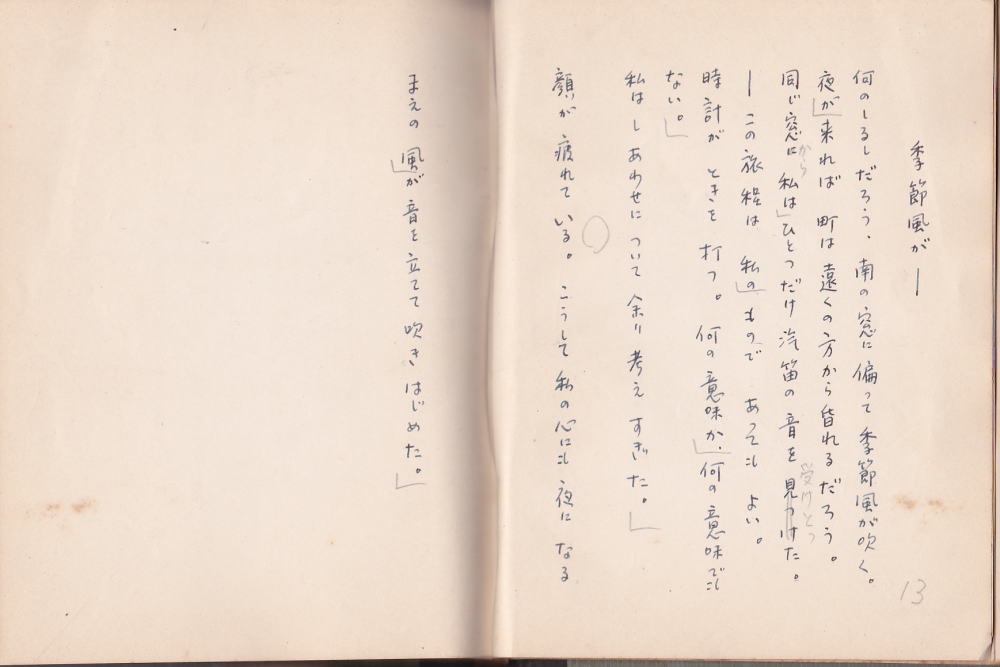 季節風が—
何のしるしだろう、南の窓に偏って季節風が吹く。
夜が来れば 町は遠くの方から昏れるだろう。
同じ窓に 私はひとつだけ汽笛の音を見つけた。
から
受けとつ
—この旅程は 私の ものであってもよい。
時計が ときを打つ。何の意味か、何の意味でも
ない。
私はしあわせについて余り考えすぎた。
顔が疲れている。こうして私の心にも夜になる
まえの 風が音を立てて吹きはじめた。
13